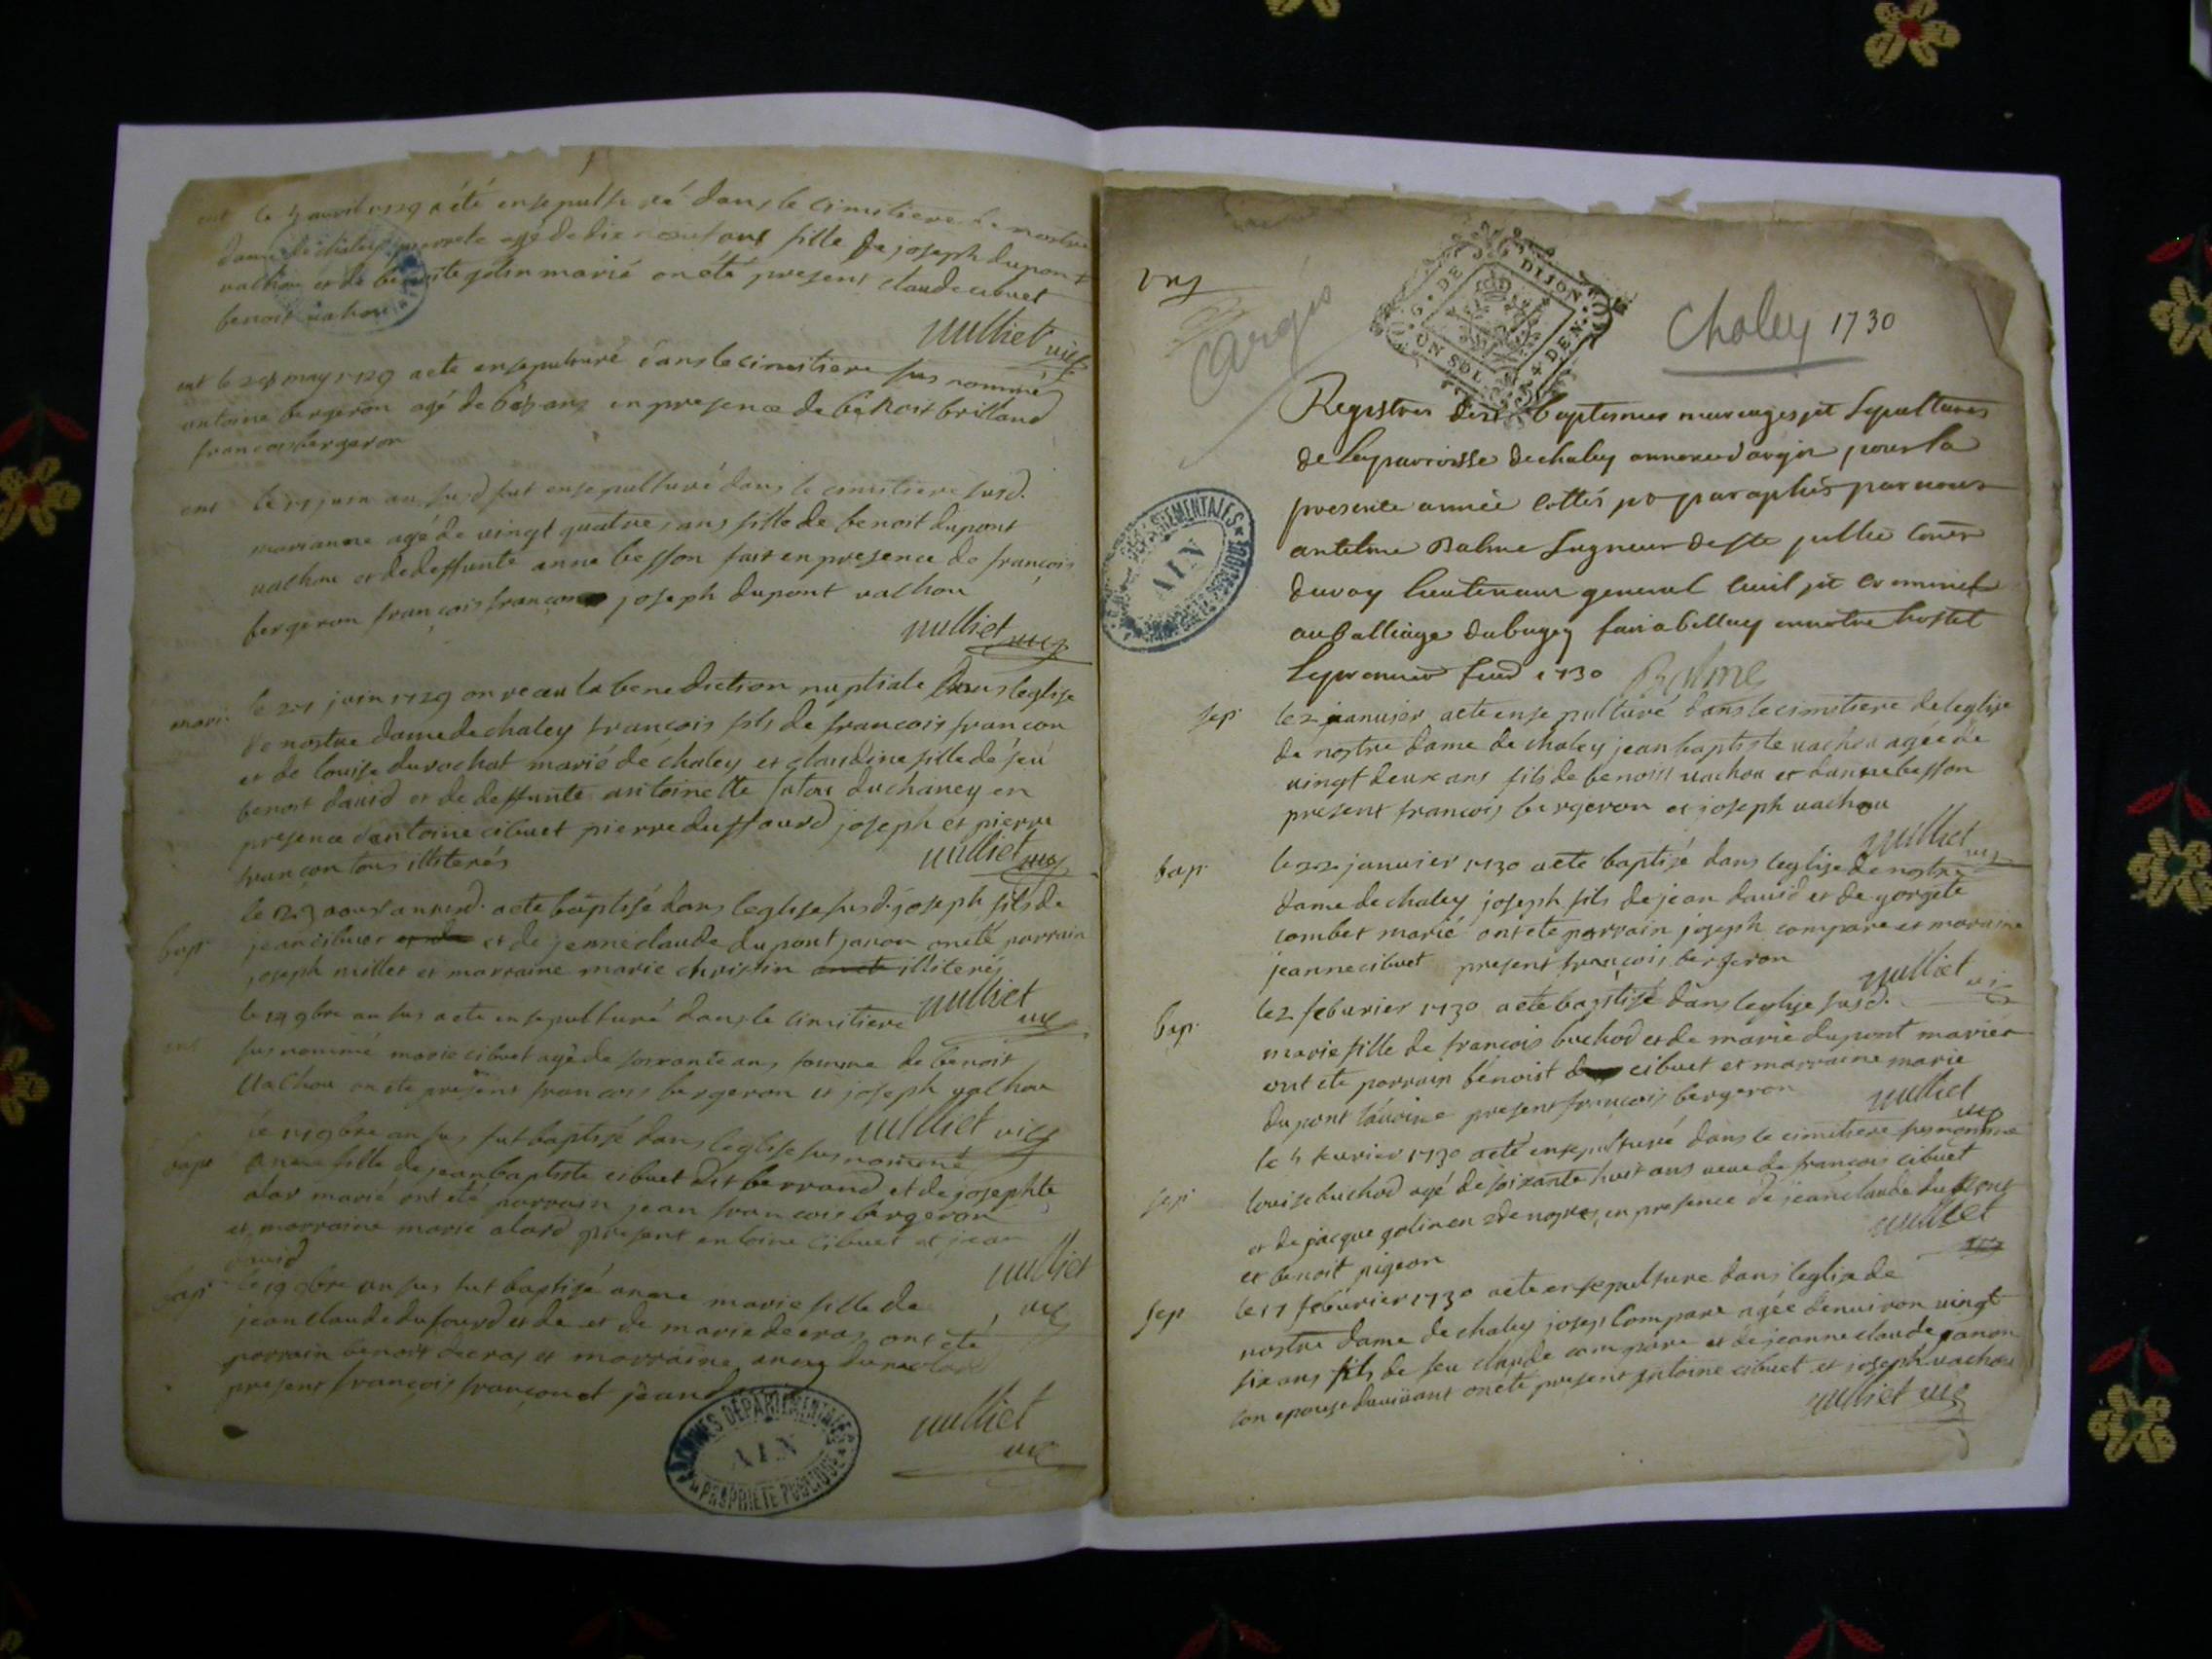 ent le avril 1729 a été ensepulturé dans le cimitiere de nostre
dame de chaley agé de ans fille de joseph dupont
vachou et de golin marié on été present claude cibuet
benoit vachou
vulliet vic
ent le may 1729 a ete ensepulturé dans le cimitiere sus nommé
antoine bergeron agé de ans en presence de benoit brilland
francois bergeron
ent le juin au susd fut ensepulturé dans le cimitiere susd.
marianne agé de vingt quatre ans fille de benoit dupont
vachou et de deffunte anne besson fait en presence de françois
bergeron françois françon joseph dupont vachou
vulliet vic
marié le juin 1729 on receu la benediction nuptiale dans leglise
de nostre dame de chaley francois fils de francois françon
et de louise durochat marié de chaley et claudine fille de feu
benoit david et de deffunte antoinette duchaney en
presence dantoine cibuet pierre duffourd joseph et pierre
françon tous illiterés
vulliet vic
bap le aoust an susd. a ete baptisé dans leglise susd. joseph fils de
jean cibuet et de jenne claude dupont janon on eté parrain
joseph millet et marraine marie christin illiterés
vulliet
vic
ent le 9bre an sus a ete ensepulturé dans le cimitiere
sus nommé marie cibuet agé de soixante ans femme de benoit
vachou on ete present francois bergeron et joseph vachou
vulliet vic
bapt le 9bre an sus fut baptisé dans leglise sus nommé
anne fille de jean baptiste cibuet dit berrand et de josephte
alar marié ont eté parrain jean francois bergeron
et marraine marie alard present antoine cibuet et jean
david
vulliet
vic
bap le 19 9bre an sus fut baptisé anne marie fille de
jean claude dufourd et de et de marie decroz ont eté
parrain benoit decroz et marraine
present françois françon et jean
vulliet
vic
ARCHIVES DÉPARTEMENTALES
AIN
PROPRIÉTÉ PUBLIQUE
Argis
G. DE DIJON
UN SOL 4 DEN.
Chaley 1730
Registres des baptesmes mariages et sepultures
de la parroisse de chaley annexe d'argis pour la
presente année cottés et paraphés par nous
antelme Balme conser
du roy lieutenant general civil et criminel
au balliage du bugey fait a belley en notre hostel
le premier 1730 Balme
DÉPARTEMENTALES
AIN
sep le 2 janvier a ete ensepulturé dans le cimitiere de leglise
de nostre dame de chaley jean baptiste vachou agée de
vingt deux ans fils de benoist vachou et danne besson
present francois bergeron et joseph vachou
vulliet
vic
bap le 22 janvier 1730 a ete baptisé dans leglise de nostre
dame de chaley joseph fils de jean david et de gorgete
combet marié ont ete parrain joseph compare et maraine
jeanne cibuet present françois bergeron
vulliet vic
bap le 2 feburier 1730 a eté baptisé dans leglise susd.
marie fille de francois buchod et de marie dupont mariér
ont ete parrain bénoist cibuet et marraine marie
dupont present françois bergeron
vulliet
vic
sep le feurier 1730 a eté ensepulturé dans le cimitiere sus nommé
louise buchod agé de soixante huit ans veue de francois cibuet
et de jacque golin en 2de noces, en presence de jean claude dupont
et benoit pigeon
vulliet
vic
sep le 17 feburier 1730 a ete ensepulture dans leglise de
nostre dame de chaley josep Compare agée denuiron vingt
six ans fils de feu claude compare et de jeanne claude janon
son epouse du vivant on eté present antoine cibuet et joseph vachou
vulliet vic